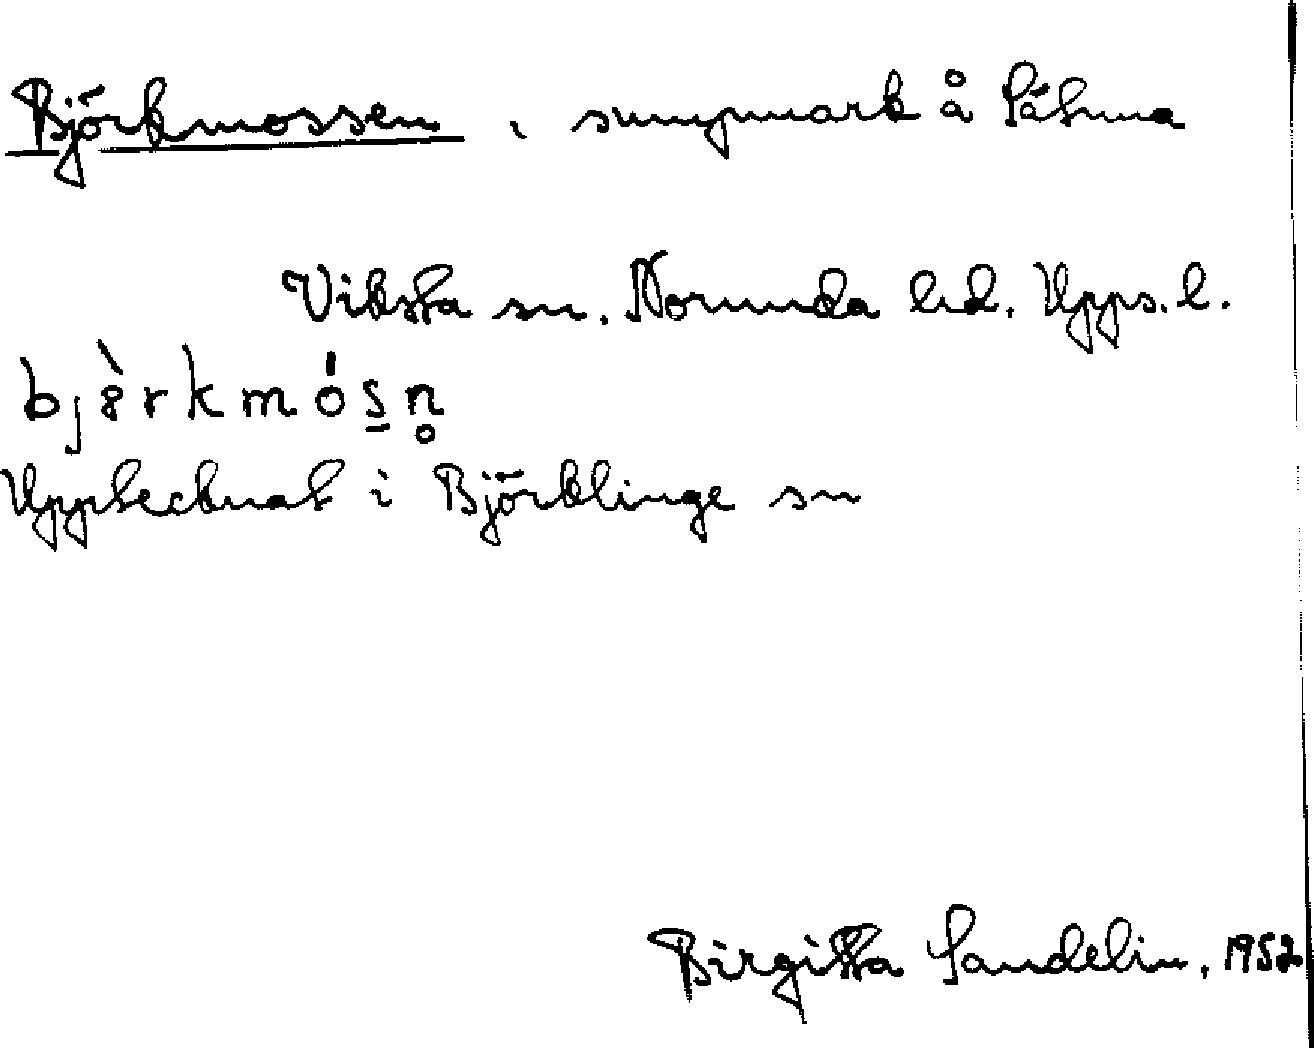 Björkmossen, sumpmark å Sätuna
Viksta sn. Norunda hd. Upps. l.
Upptecknat i Björklinge sn
Birgitta Sandelin, 1952